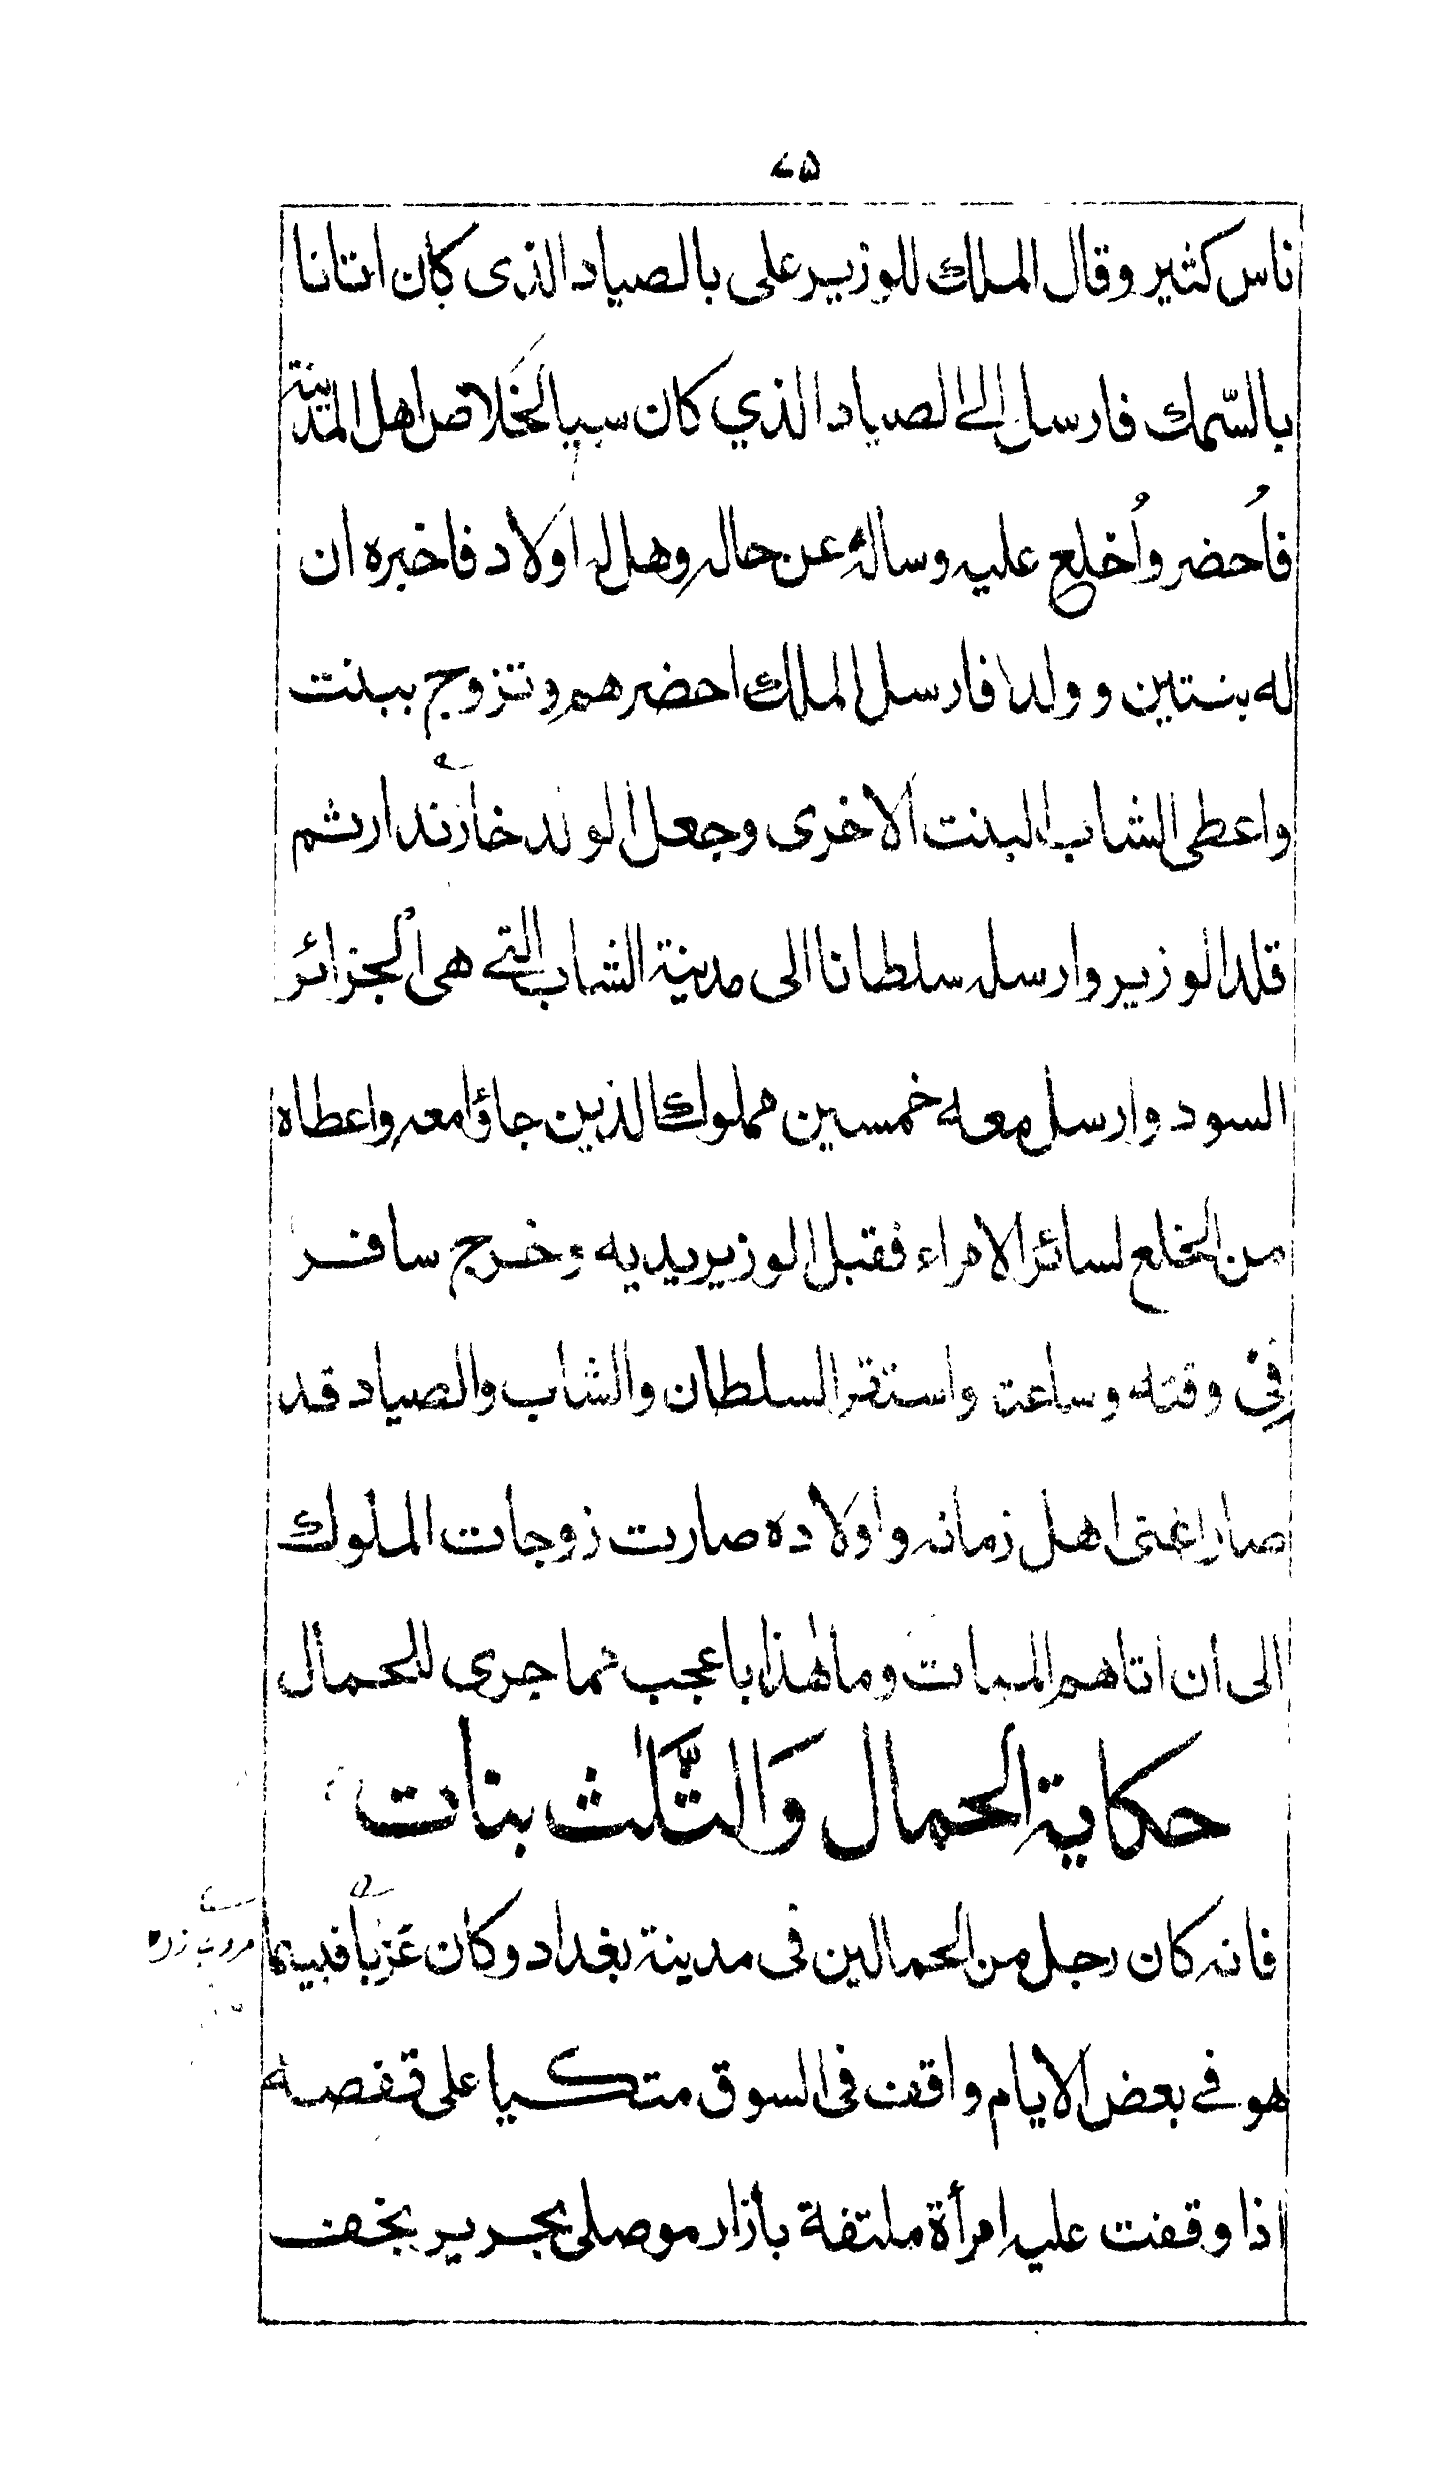 ٧٥
ناس كثير وقال الملك للوزير على بالصياد الذى كان اتانا
بالسّمك فارسل الى الصياد الذي كان سببا لخَلاص اهل المدينة
فاُحضر واُخلع عليه وساله عن حاله وهل له اولاد فاخبره ان
له بنتين وولدا فارسل الملك احضرهم وتزوج ببنت
واعطى الشاب البنت الاخرى وجعل الولد خازندار ثم
قلد الوزير وارسله سلطانا الى مدينة الشاب التى هى الجزائر
السود وارسل معه خمسين مملوكا الذين جاؤا معه واعطاه
من الخلع لسائر الامراء فقبل الوزير يديه وخرج سافر
فِى وقته وساعته واستقر السلطان والشاب والصياد قد
صار اغنى اهل زمانه واولاده صارت زوجات الملوك
الى ان اتاهم الممات وما هٰذا باعجب مما جرى للحمال
حكاية الحمال وَالثَّلٰث بنات
فانه كان رجل من الحمالين فى مدينة بغداد وكان عَزَباً فبينما
هو فى بعض الايام واقف فى السوق متكيا على قفصه
اذا وقفت عليه امرأة ملتفة بأزار موصلى بحرير بخف